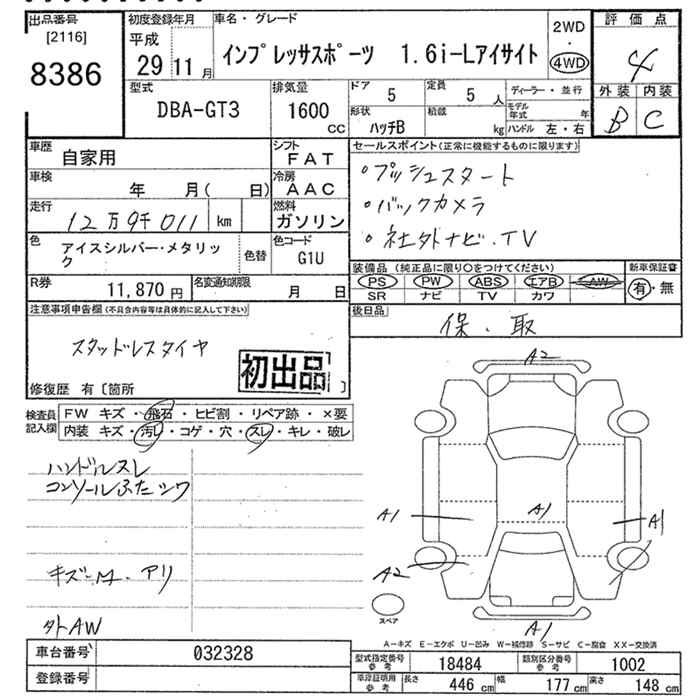 出品番号
[2116]
8386
初度登録年月
平成
29 11 月
車名・グレード
インプレッサスポーツ 1.6i-Lアイサイト
2WD
4WD
評価点
4
外装 内装
B C
型式
DBA-GT3
排気量
1600
CC
ドア
5
定員
5 人
ディーラー・並行
形状
ハッチB
積載
kg
モデル年式 年
ハンドル 左・右
車歴
自家用
シフト
FAT
車検
年 月( 日)
冷房
AAC
走行
12万9千011 km
燃料
ガソリン
色
アイスシルバー・メタリック
色替
色コード
G1U
R券
11,870 円
名変通知期限
月 日
セールスポイント(正常に機能するものに限ります)
・プッシュスタート
・バックカメラ
・社外ナビ.TV
装備品(純正品に限り○をつけてください)
PS PW ABS エアB AW
SR ナビ TV カワ
新車保証書
有・無
後日品
保.取
注意事項申告欄(不具合内容等は具体的に記入して下さい)
スタッドレスタイヤ
初出品
修復歴 有〔箇所
検査員記入欄
FW キズ・飛石・ヒビ割・リペア跡・×要
内装 キズ・汚レ・コゲ・穴・スレ・キレ・破レ
ハンドルスレ
コンソールふたシワ
キズ-M.アリ
外AW
A2
A1
A1
A1
A2
A1
スペア
A-キズ E-エクボ U-凹み W-補修跡 S-サビ C-腐食 XX-交換済
車台番号
032328
登録番号
型式指定番号参考
18484
類別区分番号参考
1002
車庫証明用参考
長さ 446 cm
幅 177 cm
高さ 148 cm